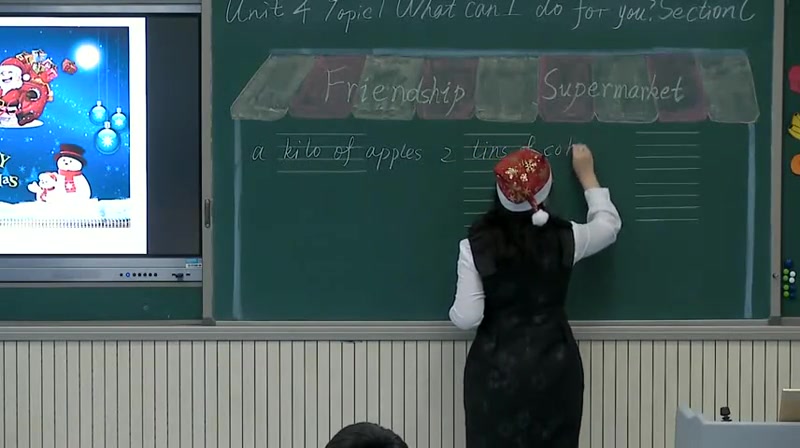 Unit 4 Topic1 What can I do for you? Section C
Friendship Supermarket
a kilo of apples 2 tins of